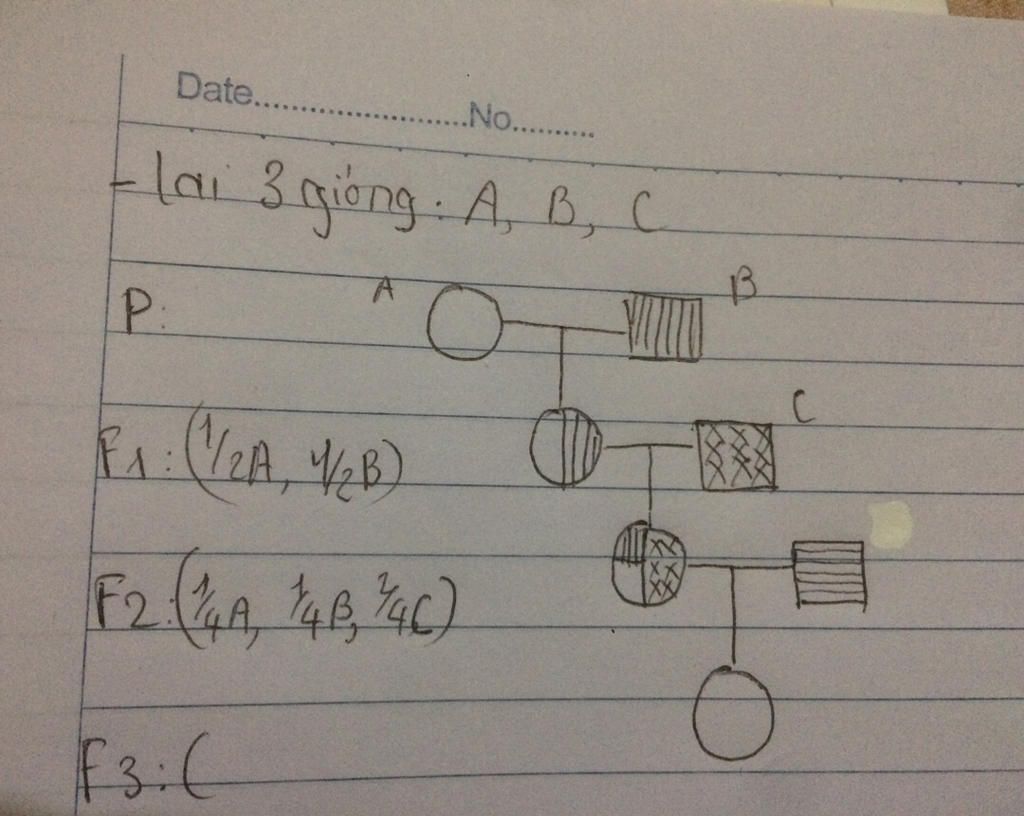 Date......................No..........
- lai 3 giống: A, B, C
P: A B
C
F1: (1/2A, 1/2B)
F2: (1/4A, 1/4B, 2/4C)
F3: (